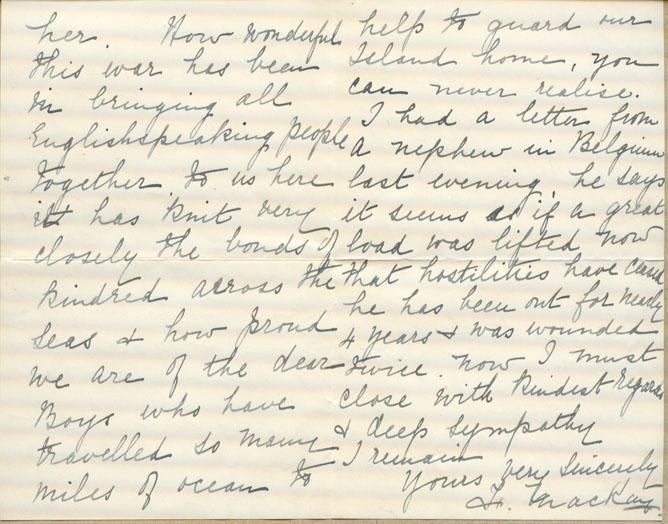 her. How wonderful
this war has been
in bringing all
Englishspeaking people
together, to us here
it has knit very
closely the bonds of
kindred across the
seas & how proud
we are of the dear
Boys who have
travelled so many
miles of ocean to
help to guard our
Island home, you
can never realise.
I had a letter from
a nephew in Belgium
last evening, he says
it seems as if a great
load was lifted now
that hostilities have ceased
he has been out for nearly
4 years & was wounded
twice. now I must
close with kindest regards
& deep sympathy
I remain
Yours very sincerely
Mackay.